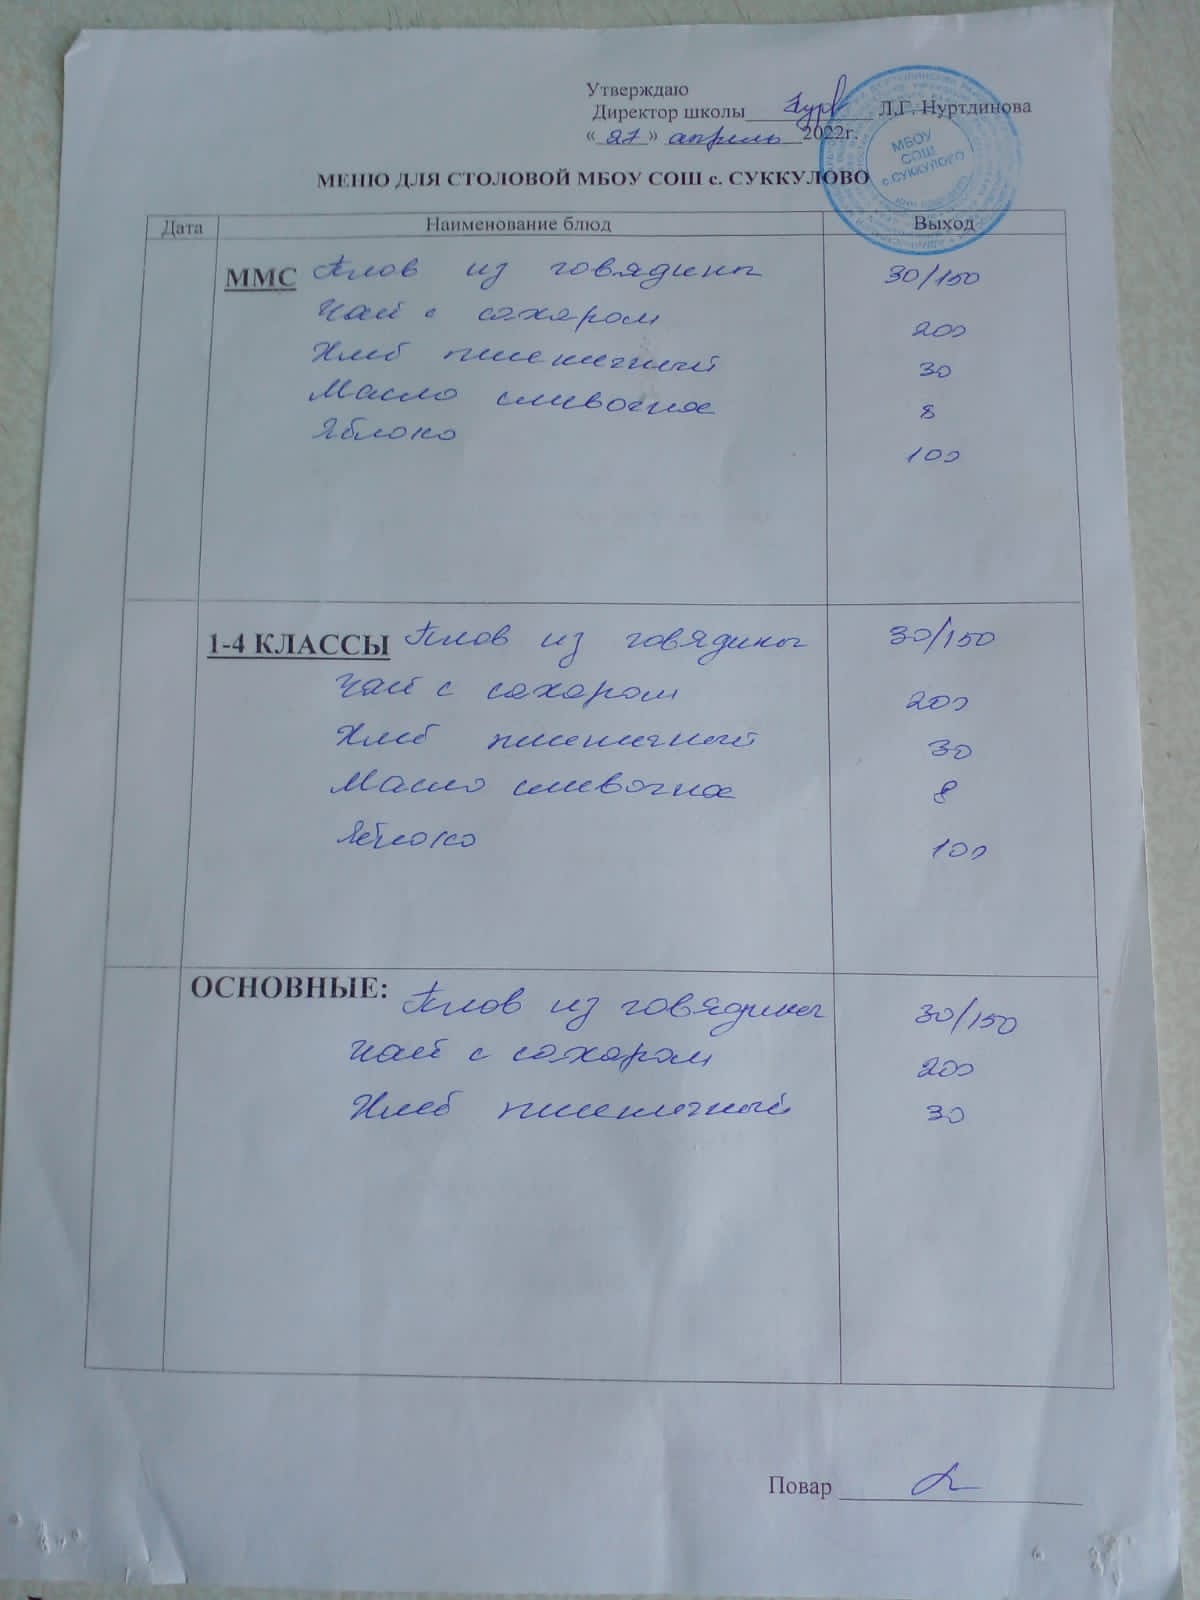 Утверждаю
Директор школы Л.Г. Нуртдинова
« 27 » апрель 2022г.
МБОУ
СОШ
с.СУККУЛОВО
МЕНЮ ДЛЯ СТОЛОВОЙ МБОУ СОШ с. СУККУЛОВО
Дата Наименование блюд Выход
ММС Плов из говядины 30/150
Чай с сахаром 200
Хлеб пшеничный 30
Масло сливочное 8
Яблоко 100
1-4 КЛАССЫ Плов из говядины 30/150
Чай с сахаром 200
Хлеб пшеничный 30
Масло сливочное 8
Яблоко 100
ОСНОВНЫЕ: Плов из говядины 30/150
Чай с сахаром 200
Хлеб пшеничный 30
Повар